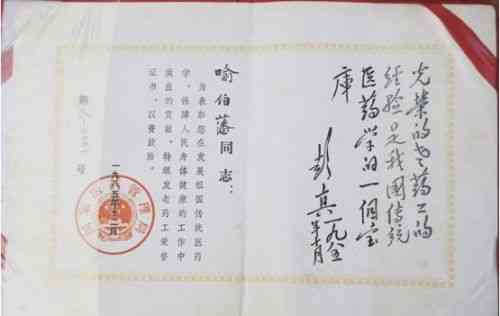 光荣的老药工的
经验是我国传统
医药学的一個宝
库
彭真 一九八五年十月
喻伯藩同志：
为表彰您在发展祖国传统医药
学、保障人民身体健康的工作中
做出的贡献，特颁发老药工荣誉
证书，以资鼓励。
国家医药管理局
一九八五年十二月
第 号